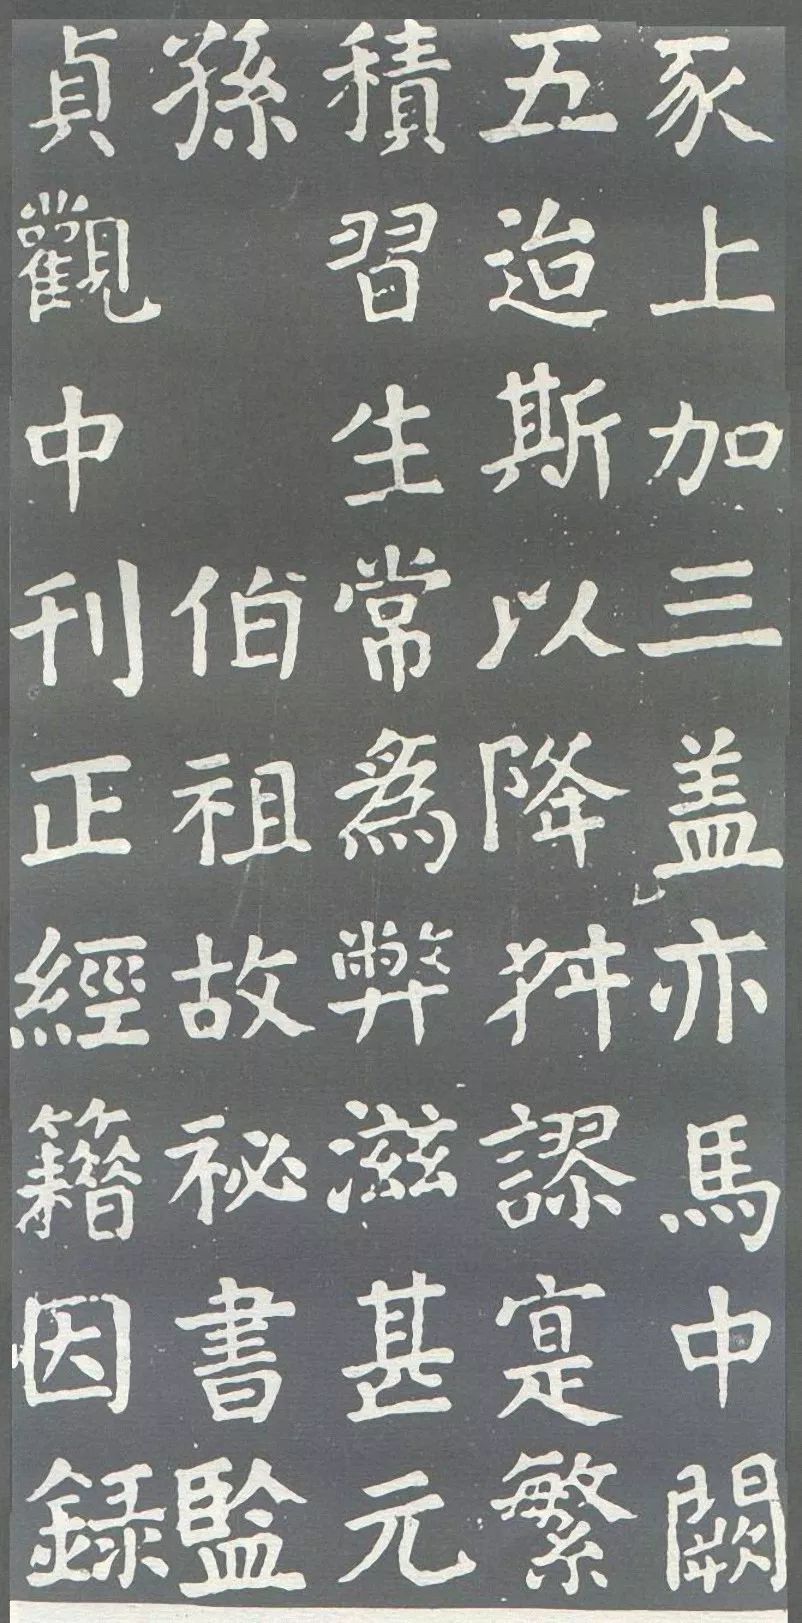 豕上加三盖亦馬中闕
五迨斯以降舛謬寔繁
積習生常為弊滋甚元
孫伯祖故祕書監
貞觀中刊正經籍因錄